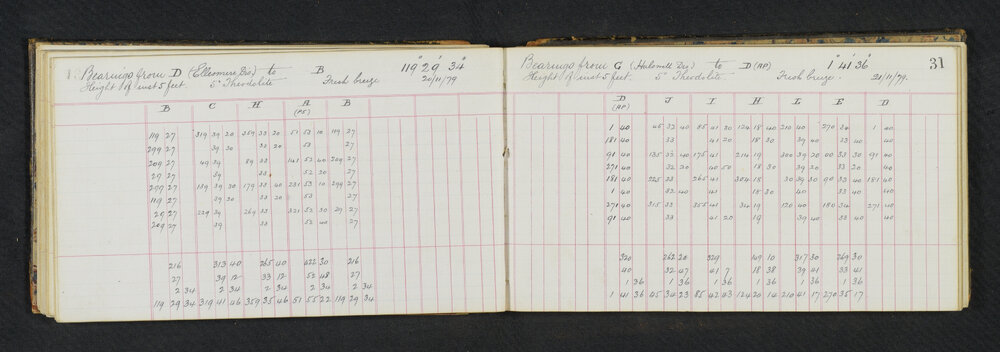 Bearings from D (Ellesmere Dis) to B 119° 29' 34"
Height of inst 5 feet. 5" Theodolite Fresh breeze 20/11/79
B C H A B
(PS)
119 27 319 39 20 359 33 20 51 53 10 119 27
299 27 39 30 33 20 53 27
209 27 49 39 89 33 141 53 40 209 27
29 27 39 33 52 20 27
299 27 139 39 30 179 33 40 231 53 10 299 27
119 27 39 20 33 20 53 27
29 27 229 39 269 33 321 53 30 29 27
209 27 39 33 53 40 27
216 313 40 265 40 422 30 216
27 39 12 33 12 52 48 27
2 34 2 34 2 34 2 34 2 34
119 29 34 319 41 46 359 35 46 51 55 22 119 29 34
31
Bearings from G (Halswell Dis) to D (AP) 1° 41' 36"
Height of inst 5 feet. 5" Theodolite Fresh breeze. 21/11/79.
D J I H L E D
(AP)
1 40 45 32 40 85 41 20 124 18 40 210 40 270 34 1 40
181 40 33 41 20 18 30 39 40 33 40 40
91 40 135 32 40 175 41 214 19 300 39 20 00 33 30 91 40
271 40 32 20 40 50 18 30 39 20 33 20 40
181 40 225 33 265 41 304 18 30 39 30 90 33 40 181 40
1 40 32 40 41 18 30 40 33 40 40
271 40 315 33 355 41 34 19 120 40 180 34 271 40
91 40 33 41 20 19 39 40 33 40 40
320 262 20 329 149 10 317 30 269 30
40 32 47 41 7 18 38 39 41 33 41
1 36 1 36 1 36 1 36 1 36 1 36
1 41 36 45 34 23 85 42 43 124 20 14 210 41 17 270 35 17